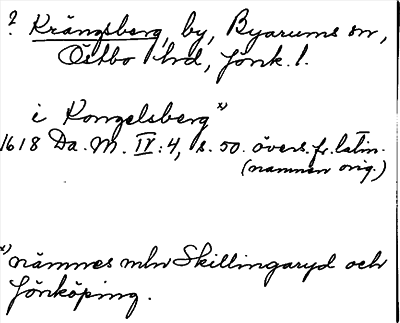 ? Krängsberg, by, Byarums sn,
Östbo hd, Jönk. l.
i Kongelsberg x)
1618 Da. M. IV:4, s. 50. övers. fr. latin.
(namnen orig.)
x) nämnes mln Skillingaryd och
Jönköping.